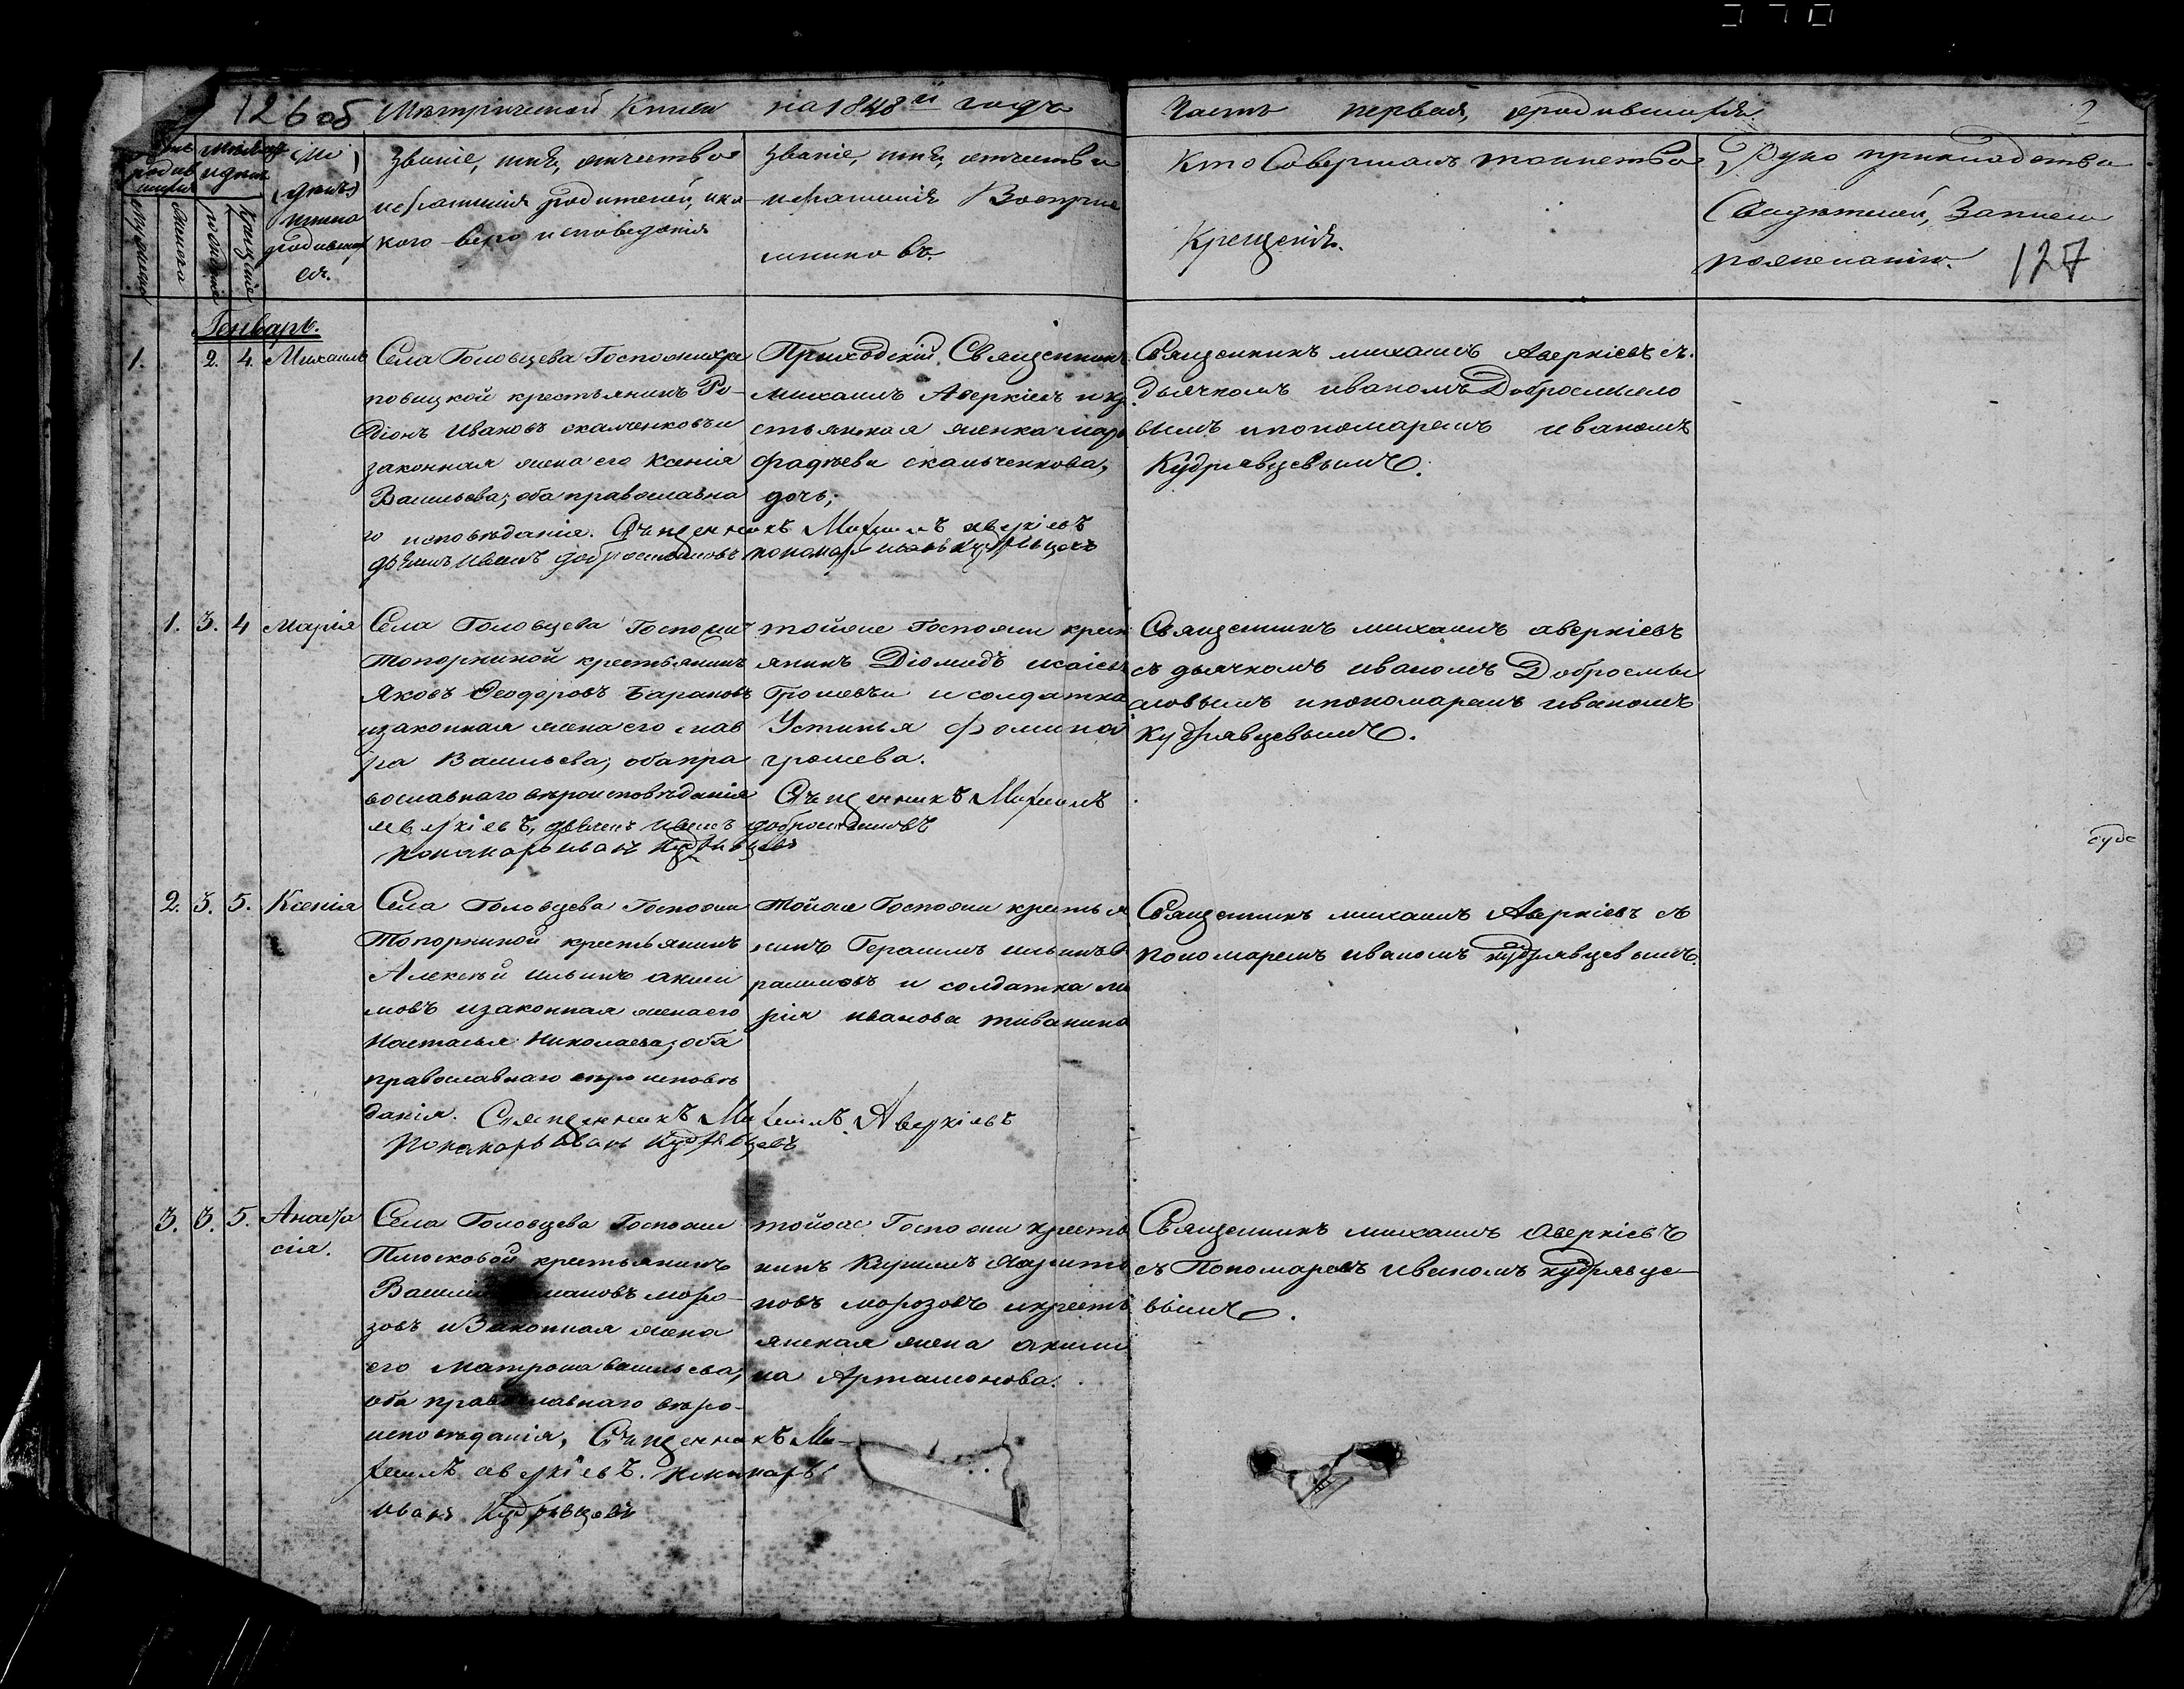 126 об Метрической Книги на 1848й годъ
Часть первая, о родившихся. 2
Званіе, имя, отчество
и фамилія родителей, и ка-
кого вероисповеданія
Званіе, имя, отчество
и фамилія Воспріе
мниковъ.
Кто Совершалъ таинство
Крещенія.
Рукоприкладство
Свидетелей, Записи
по желанію. 127
имена
родивших
ся.
Генварь.
1. 2. 4. Михаилъ
Села Головцева Госпожи
крестьянинъ Ро-
діонъ Ивановъ скалченковъ и
законная жена его Ксенія
Васильева; оба православна
го исповѣданія. Священникъ Михаилъ аверкіевъ
дьячекъ Иванъ добросмысловъ пономарь иванъ кудрявцевъ
Приходскій Священникъ
михаилъ Аверкіевъ и кре
стьянская женка марь
фадѣева скальченкова,
дочь;
Священникъ михаилъ Аверкіевъ съ
дьячкомъ иваномъ Добросмысло
вымъ и пономаремъ иваномъ
Кудрявцевымъ.
1. 3. 4 Марія
Села Головцева Госпожи
Топорниной крестьянинъ
Яковъ Ѳеодоровъ Барановъ
и законная жена его мав
ра Васильева; оба пра
вославнаго вѣроисповѣданія
аверкіевъ, дьячекъ Иванъ добросмысловъ
пономарь иванъ кудрявцевъ
тойже Госпожи крест
янинъ Діомидъ исаіевъ
и солдатка
Устинья Фомина
грошева.
Священникъ Михаилъ
Священникъ михаилъ аверкіевъ
съ дьячкомъ иваномъ Добросмы
словымъ и пономаремъ иваномъ
кудрявцевымъ.
2. 3. 5. Ксенія
Села Головцева Госпожи
Топорниной крестьянинъ
Алексѣй ильинъ аки
мовъ и законная жена его
Настасья Николаева, оба
православнаго вѣроисповѣ
данія. Священникъ Михаилъ Аверкіевъ
Пономарь иванъ кудрявцевъ
Тойже Госпожи крестья
нинъ Герасимъ ильинъ
и солдатка ма
рія иванова
Священникъ михаилъ Аверкіевъ съ
пономаремъ иваномъ кудрявцевымъ.
3. 3. 5. Анаста
сія.
Села Головцева Госпожи
Плюсковой крестьянинъ
моро-
зовъ и Законная жена
его матрона васильева,
оба православнаго вѣро-
исповѣданія, Священникъ Ми-
хаилъ аверкіевъ. пономарь
иванъ Кудрявцевъ
тойже Госпожи кресть
нинъ Кирилъ Харито
новъ морозовъ и кресть
янская жена акили
на Артамонова.
Священникъ михаилъ аверкіевъ
съ Пономаремъ иваномъ кудрявце-
вымъ.